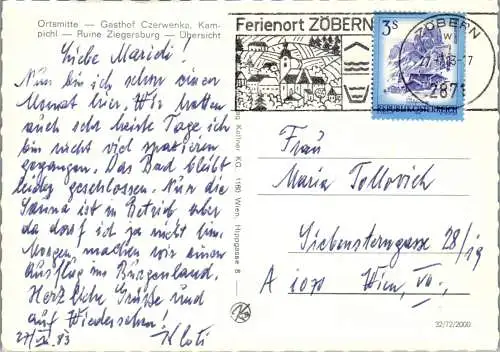 Ortsmitte — Gasthof Czerwenka, Kam-
pichl — Ruine Ziegersburg — Übersicht
Ferienort ZÖBERN
ZÖBERN
2871
3 S
REPUBLIK ÖSTERREICH
Liebe Mariedi!
Nun bin ich schon einen
Monat hier. Wir hatten
auch sehr heiße Tage ich
bin nicht viel spazieren
gegangen. Das Bad bleibt
leider geschlossen. Nur die
Sauna ist in Betrieb aber
da darf ich ja nicht hin.
Morgen machen wir einen
Ausflug ins Burgenland.
Herzliche Grüße und
auf Wiedersehen!
27/ 83 Kloti
Kellner KG, 1160 Wien, 8
Frau
Maria Tollovich
Siebensterngasse 28/19
A 1070 Wien, VII.,
32/72/2000